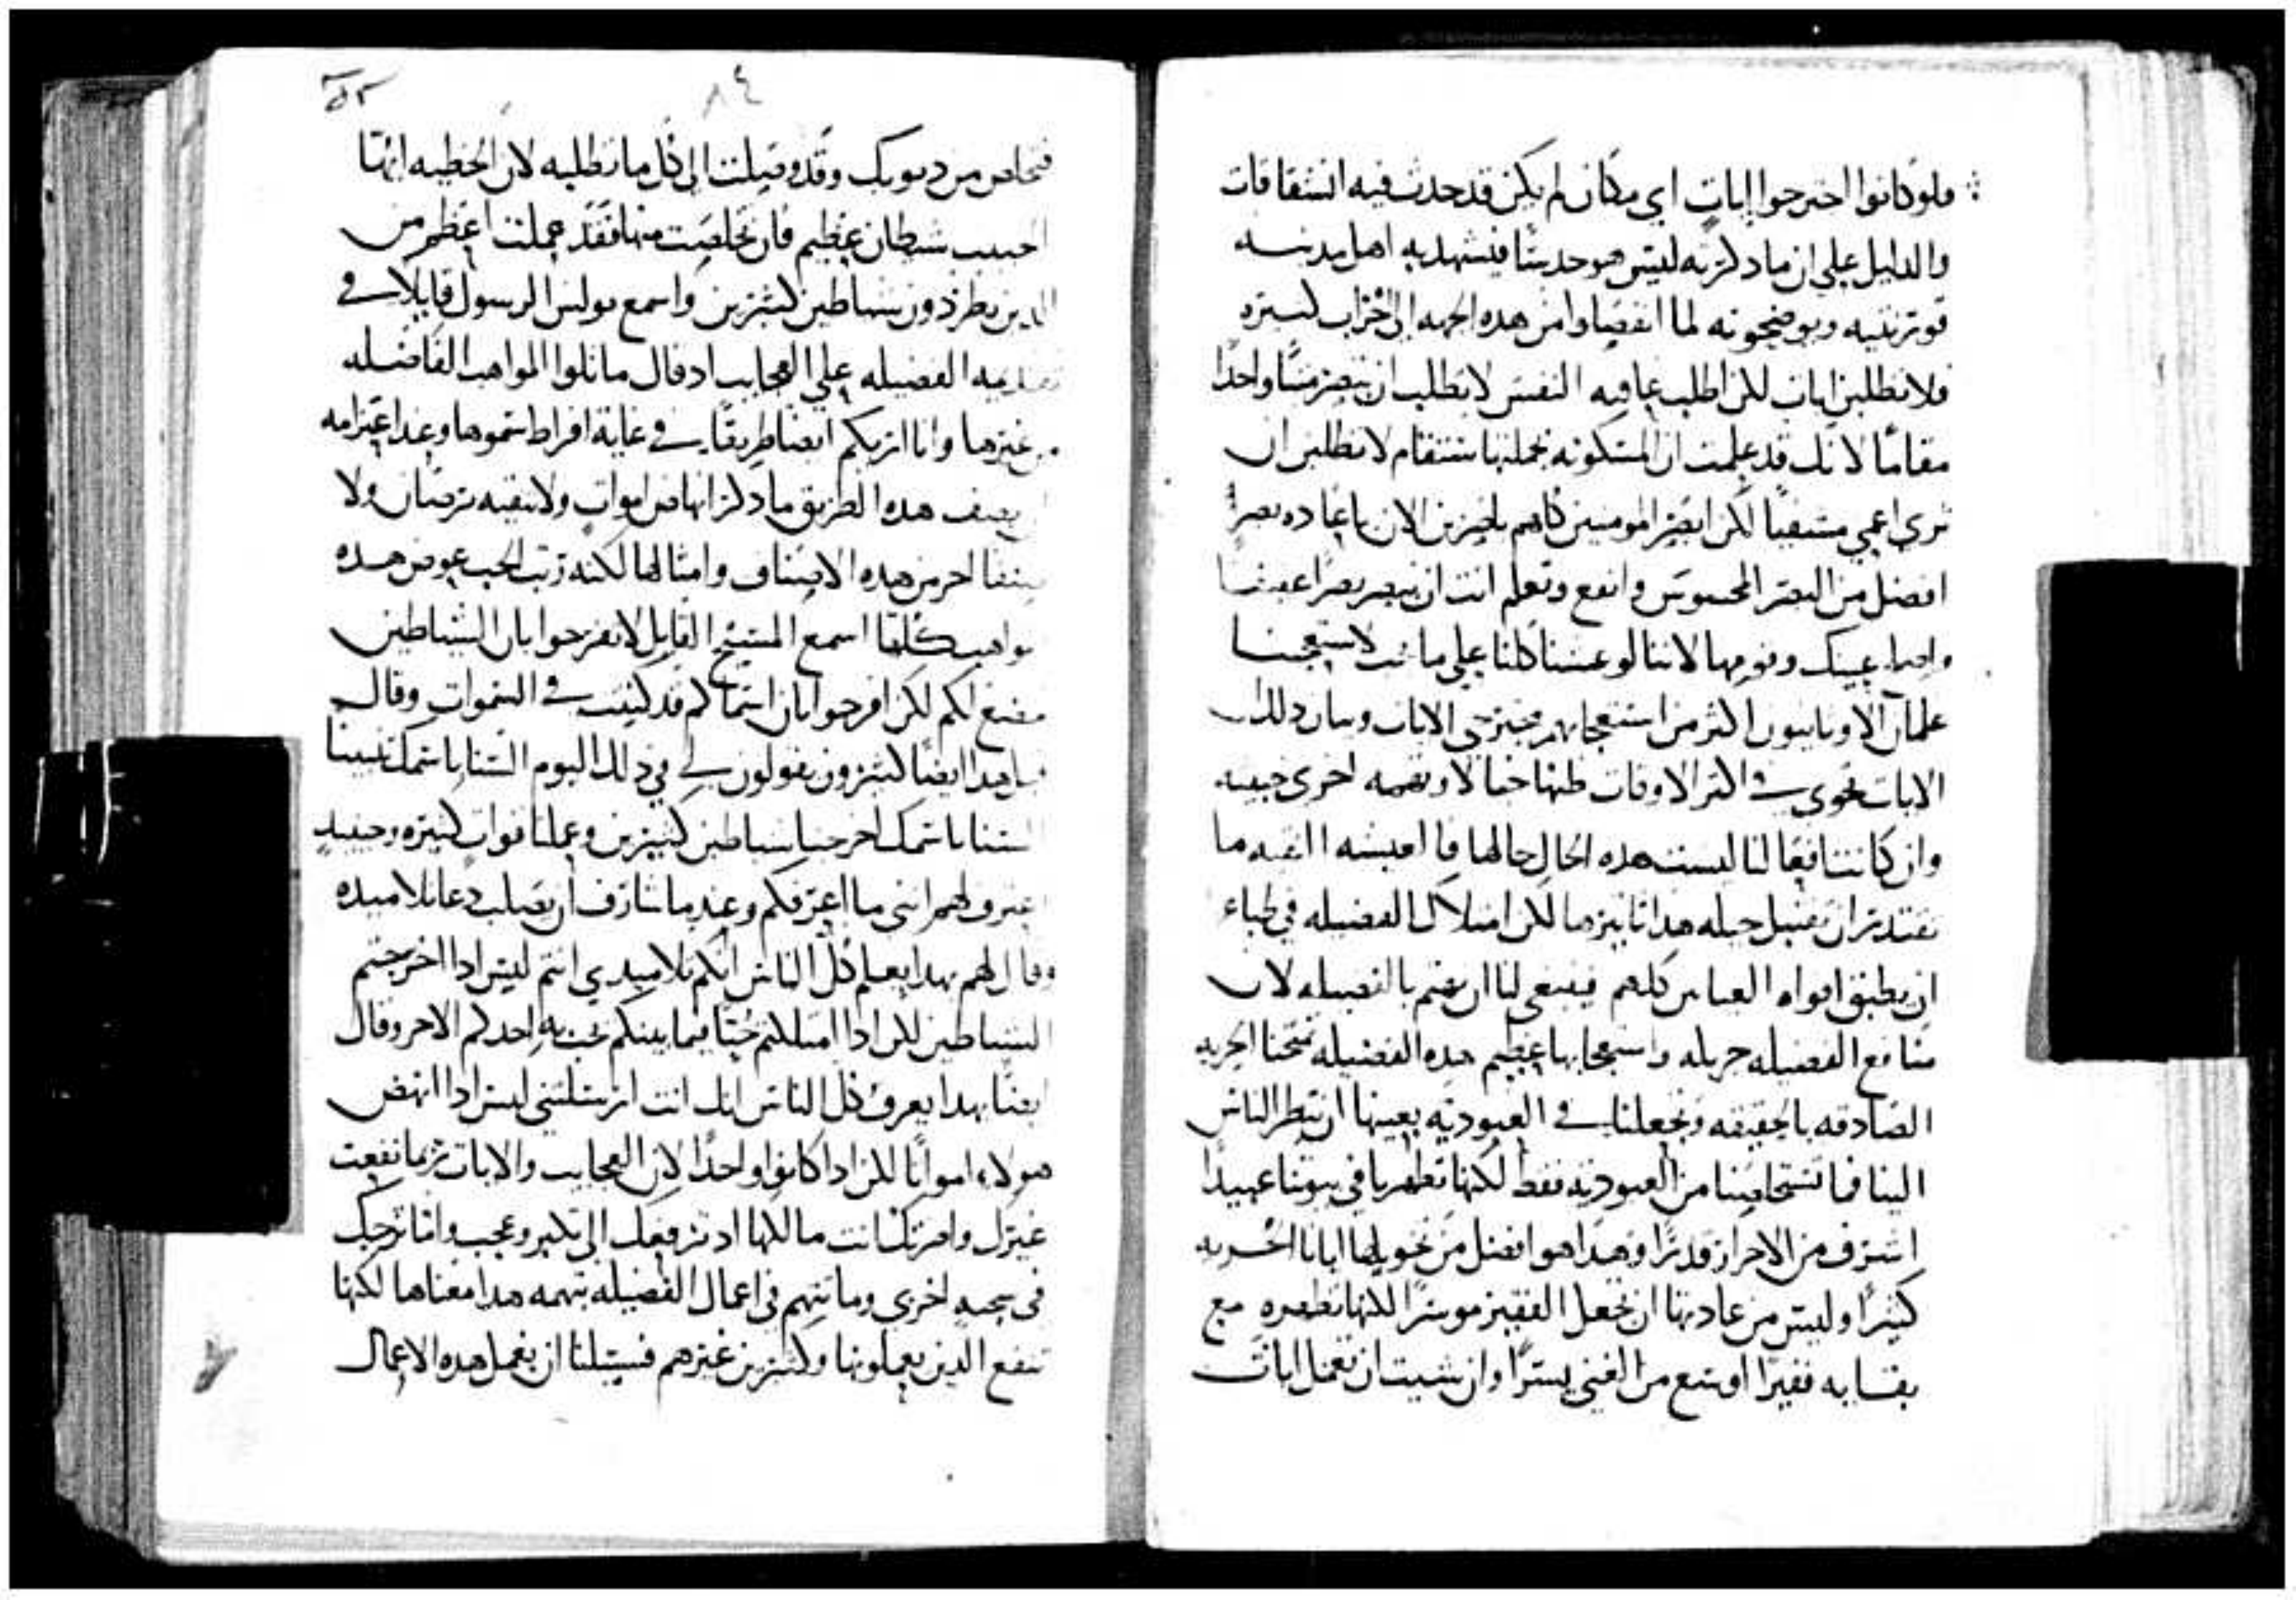 فلو كانوا اخترحوا ايات اي مكان لم يكن قد حدث فيه انشقاقات
والدليل علي ان ما ذكرته ليس هو حديثا فيشهد به اهل مدينه
قورنثيه ويوضحونه لما انفصلوا من هذه الجهه الي احزاب كثيره
فلا تطلبن ايات لكن اطلب عافيه النفس لا تطلب ان تبصر ميتا واحدا
مقاما لانك قد علمت ان المسكونه بجملتها ستقام لا تطلبن ان
تري اعمي مستشفيا لكن ابصر المومنين كلهم ناظرين الان باعاده بصر
افضل من البصر المحسوس وانفع وتعلم انت ان تبصر بصرا عفيفا
واصلح عينك وقومها لاننا لو عشنا كلنا علي ما يجب لاستعجبنا
علمان الاوثانيون اكثر من استعجابهم مجترحي الايات وبيان ذلك ان
الايات تحوي في اكثر الاوقات ظنها خيالا وتهمه اخري خبيثه
وان كانت نافعا لنا ليست هذه الحال حالها فاما عيشه النقيه ما
تقتدر ان تقبل حيله هذا تاثيرها لكن امتلاك الفضيله في طباع
ان يطبق افواه العباس كلهم فينبغي لنا ان نهتم بالفضيله لان
منافع الفضيله جزيله واستعجابها عظيم هذه الفضيله تمنحنا الحريه
الصادقه بالحقيقه وتجعلنا في العبوديه بعينها ان ينظر الناس
الينا فما تستخلصنا من العبوديه فقط لكنها تظهرنا في بيوتنا عبيدا
اشرف من الاحرار قدرا وهذا هو افضل من تخويلها ايانا الحريه
كثيرا وليس من عادتها ان تجعل الفقير موسرا لكنها تظهره مع
بقايه فقيرا اوسع من الغني يسرا وان شيت ان تعمل ايات
٥٢
٨٤
فتخلص من ذنوبك وقد وصلت الي كل ما تطلبه لان الخطيه ايها
الحبيب شيطان عظيم فان تخلصت منها فقد عملت اعظم من
الذين يطردون شياطين كثيرين واسمع بولس الرسول قايلا في
تقديمه الفضيله علي العجايب اذ قال ماثلوا المواهب الفاضله
من غيرها وانا اريكم ايضا طريقا في غاية افراط سموها وعند اعتزامه
ان يصف هذه الطريق ما ذكر انهاض اموات ولا تنقيه برصان ولا
صنفا اخر من هذه الاصناف وامثالها لكنه رتب الحب عوض هذه
مواهب كلها اسمع المسيح القايل لا تفرحوا بان الشياطين
تخضع لكم لكن افرحوا بان اسماكم قد كتبت في السموات وقال
قبل هذا ايضا كثيرون يقولون لي في ذلك اليوم السنا باسمك تنبينا
السنا باسمك اخرجنا شياطين كثيرين وعملنا قوات كثيره وحينيذ
اعترف لهم انني ما اعرفكم وعندما شارف ان يصلب دعا تلاميذه
وقال لهم بهذا يعلم كل الناس انكم تلاميذي انتم ليس اذا اخرجتم
الشياطين لكن اذا امتلكتم حبا فيما بينكم يحب به احدكم الاخر وقال
ايضا بهذا يعرف كل الناس انك انت ارسلتني ليس اذا انهض
هولاء امواتا لكن اذا كانوا واحدا لان العجايب والايات ربما نفعت
غيرك واضرتك انت مالكها اذ ترفعك الي تكبر وعجب واما تزجك
في سجيه اخري وما نتهم في اعمال الفضيله بتهمه هذا معناها لكنها
تنفع الذين يعملونها وكثيرين غيرهم فسبيلنا ان نعمل هذه الاعمال